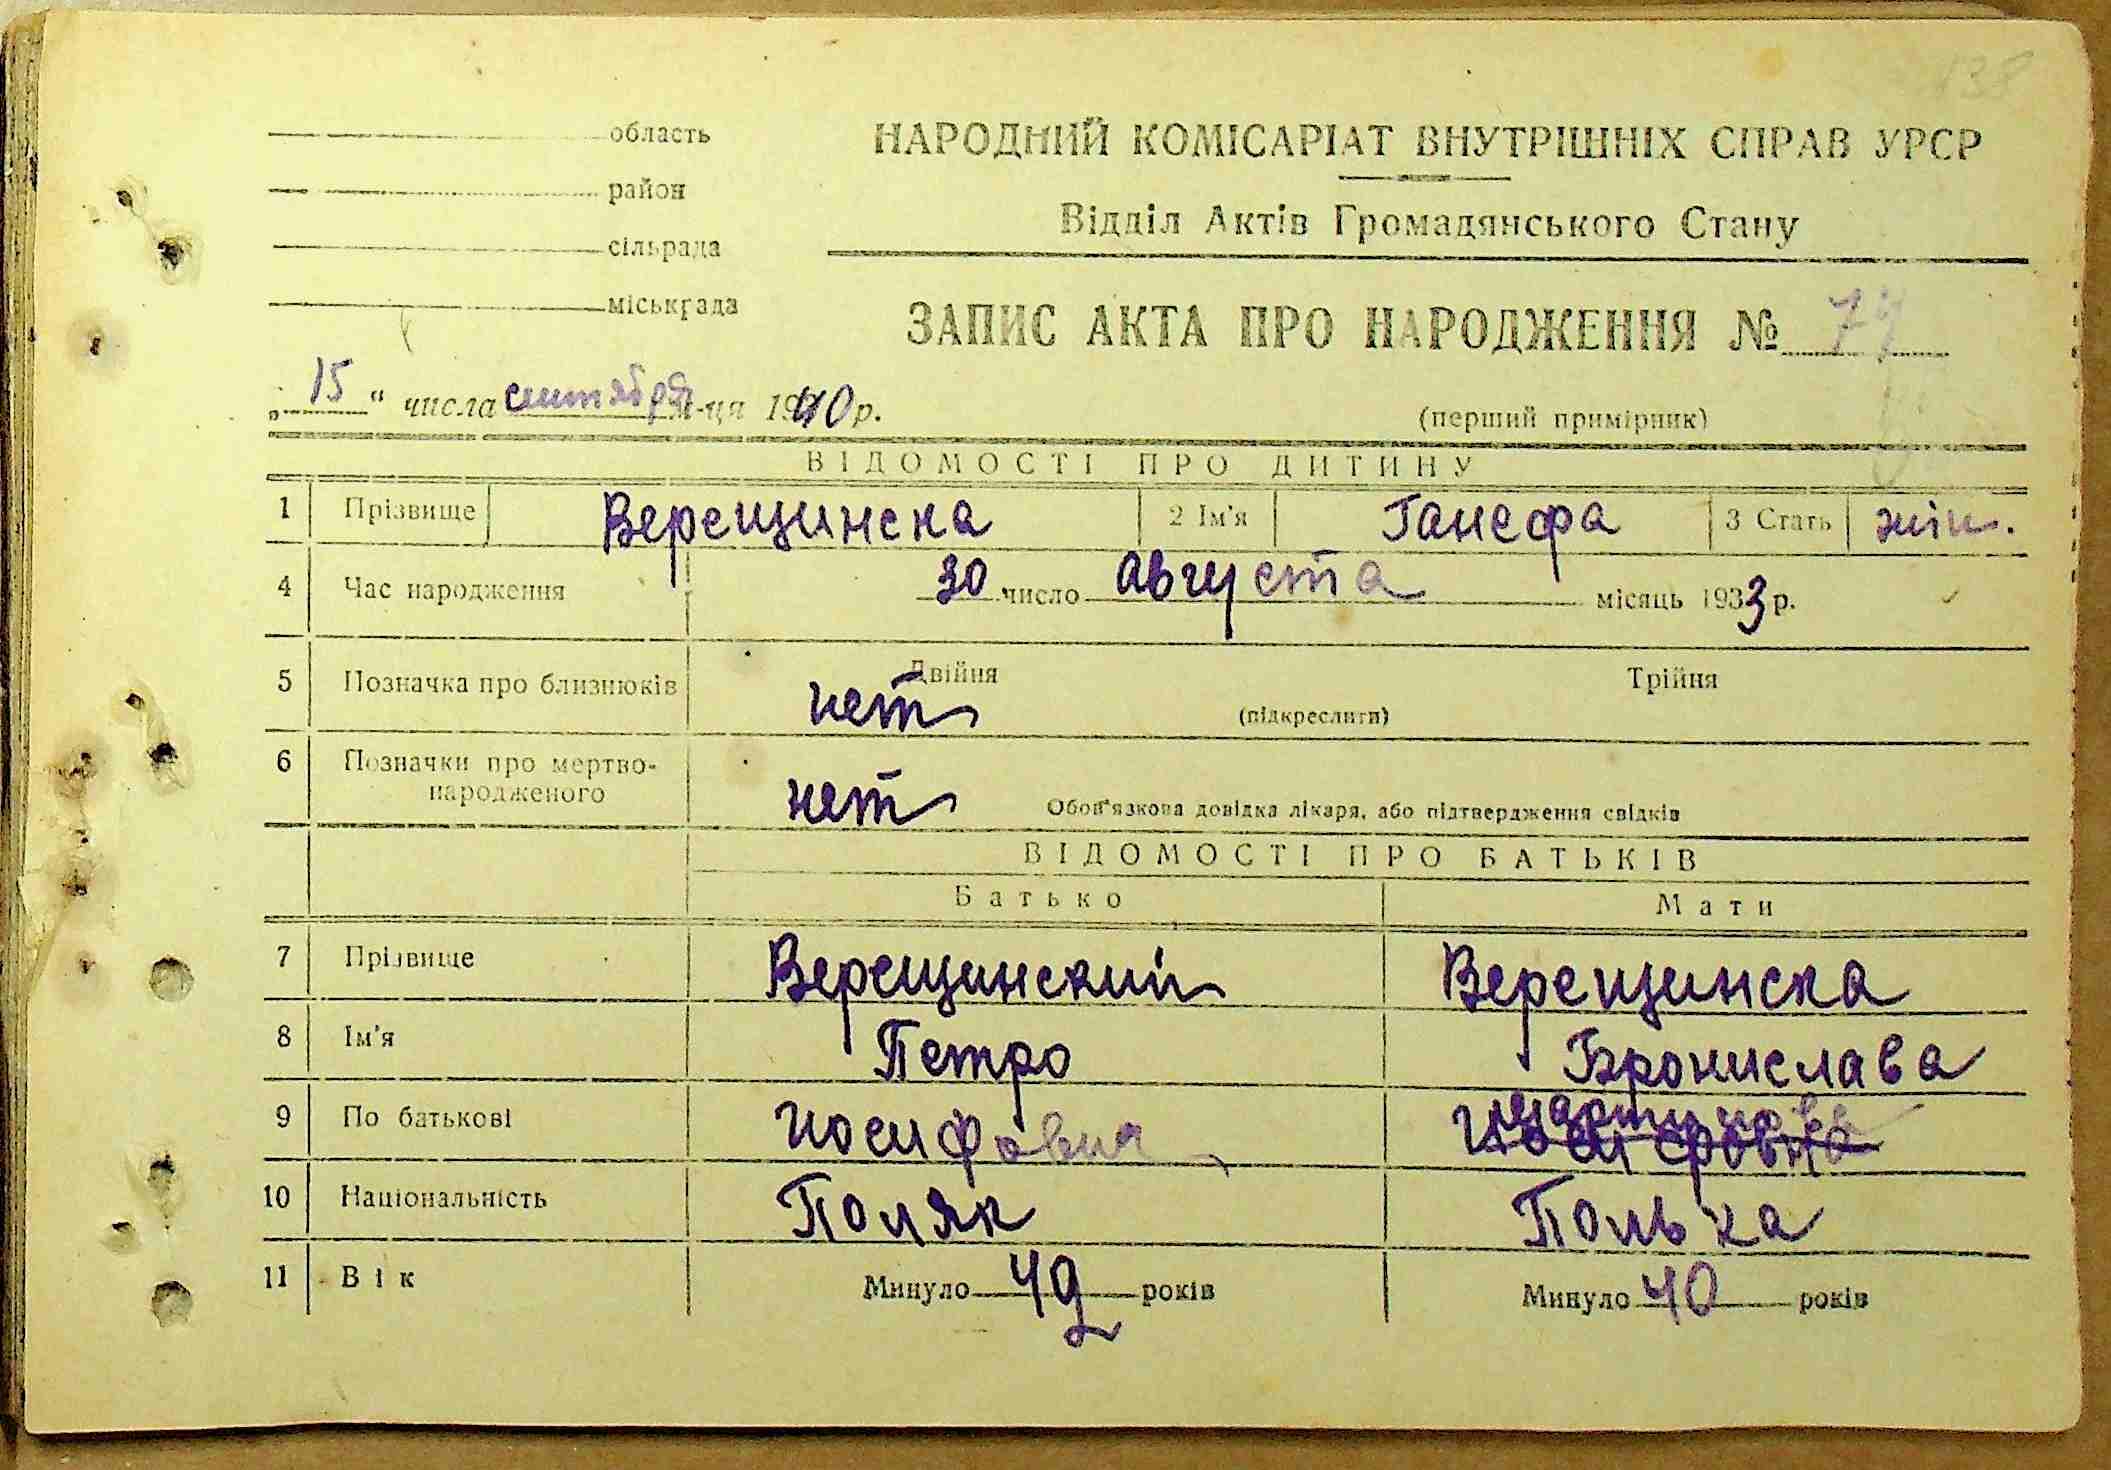 138
область
НАРОДНИЙ КОМІСАРІАТ ВНУТРІШНІХ СПРАВ УРСР
район
Відділ Актів Громадянського Стану
сільрада
міськрада
ЗАПИС АКТА ПРО НАРОДЖЕННЯ № 74
„15“ числа сентября м-ця 1940 р.
(перший примірник)
ВІДОМОСТІ ПРО ДИТИНУ
1 Прізвище Верещинска 2 Ім'я Ганефа 3 Стать жін.
4 Час народження 30 число Августа місяць 1933 р.
5 Позначка про близнюків нет Двійня Трійня
(підкреслити)
6 Позначки про мертво-
народженого нет Обов'язкова довідка лікаря, або підтвердження свідків
ВІДОМОСТІ ПРО БАТЬКІВ
Батько Мати
7 Прізвище Верещинский Верещинска
8 Ім'я Петро Бронислава
9 По батькові Иосифович Иосифовна
10 Національність Поляк Полька
11 Вік Минуло 49 років Минуло 40 років